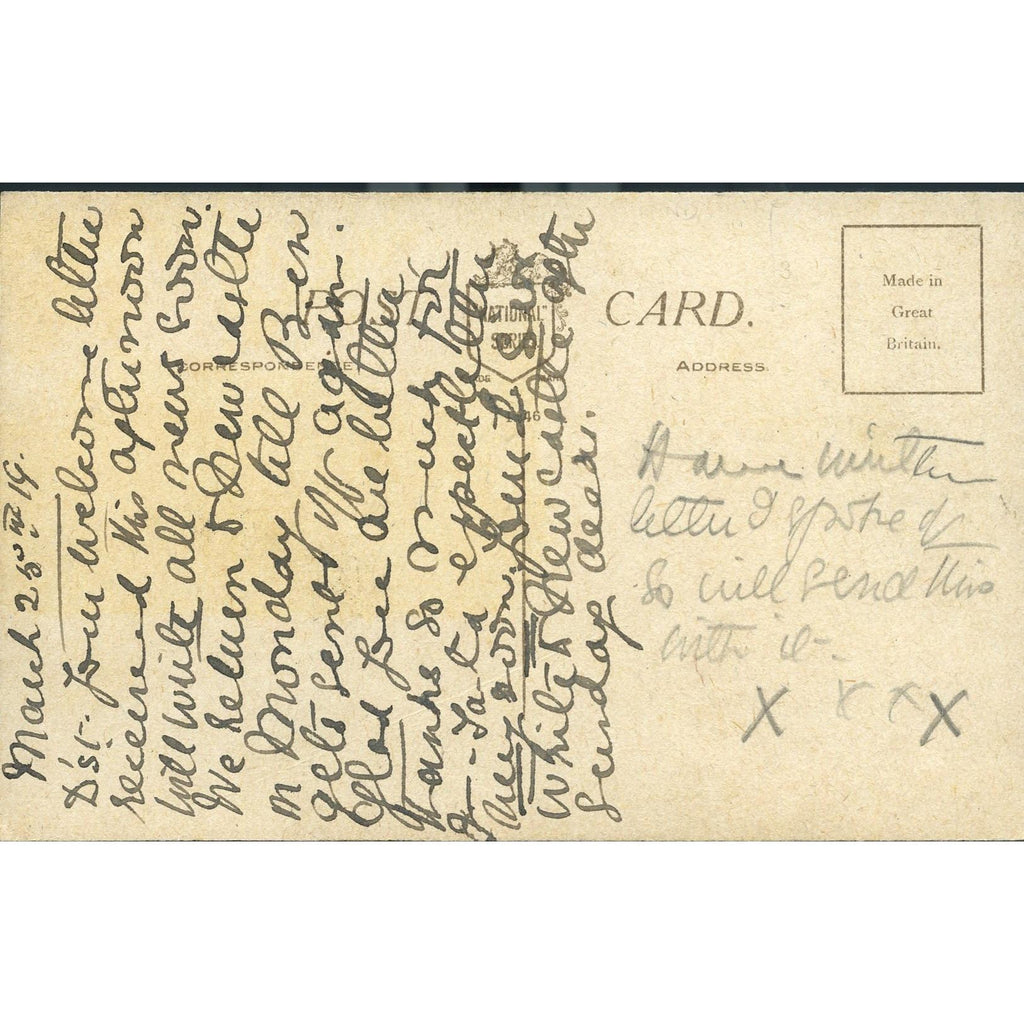 POST CARD.
"NATIONAL"
SERIES
CORRESPONDENCE
ADDRESS
Made in
Great
Britain.
March 25th 19.
Your welcome letter
received this afternoon
Will write all news soon.
We return to Newcastle
on Monday till Ben
gets sent off again.
Glad you are better
Thanks so much for
expect letter
very soon.
Write to Newcastle after
Sunday dear.
Have written
letter I spoke of
So will send this
with it-
X X X X